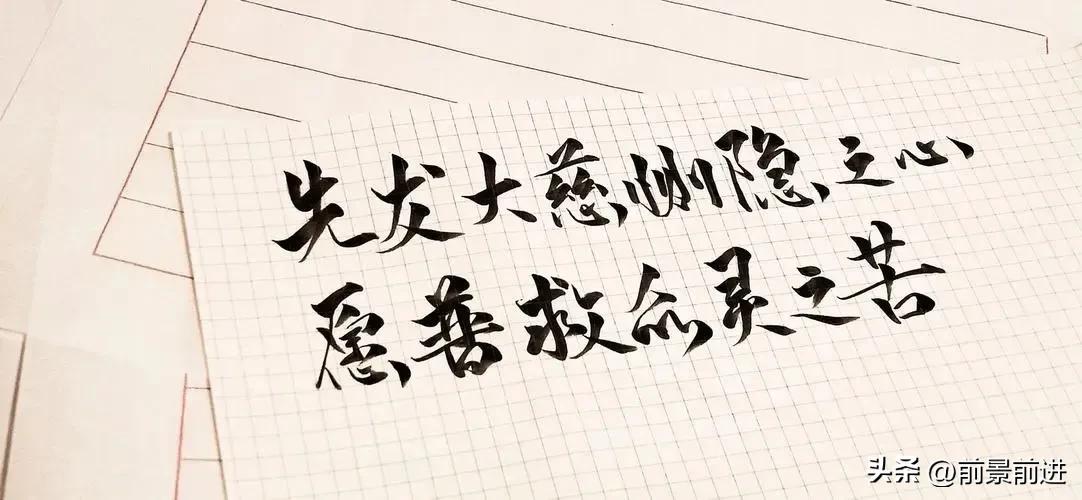 先发大慈恻隐之心
愿普救众灵之苦
头条 @前景前进